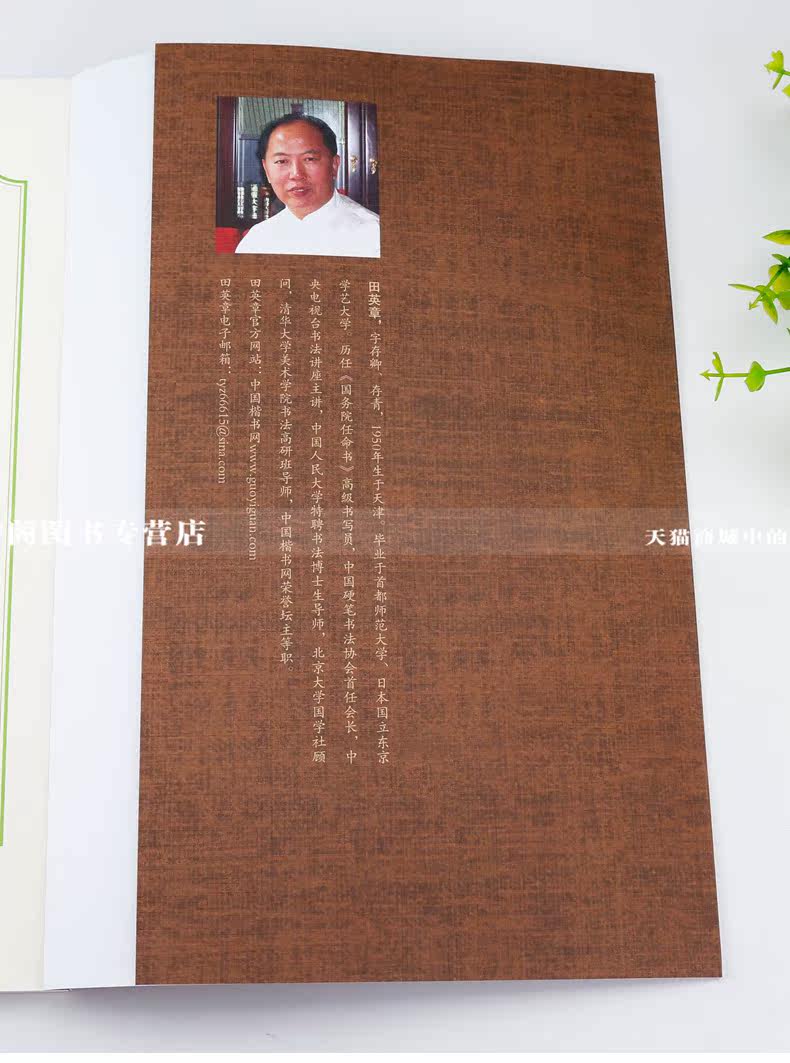 田英章，字存卿、存青，1950年生于天津。毕业于首都师范大学、日本国立东京
学艺大学 历任《国务院任命书》高级书写员，中国硬笔书法协会首任会长，中
央电视台书法讲座主讲，中国人民大学特聘书法博士生导师，北京大学国学社顾
问，清华大学美术学院书法高研班导师，中国楷书网荣誉坛主等职。
田英章官方网站：中国楷书网www.guoyiguan.com
田英章电子邮箱：tyz66615@sina.com
阁图书专营店
天猫商城中的